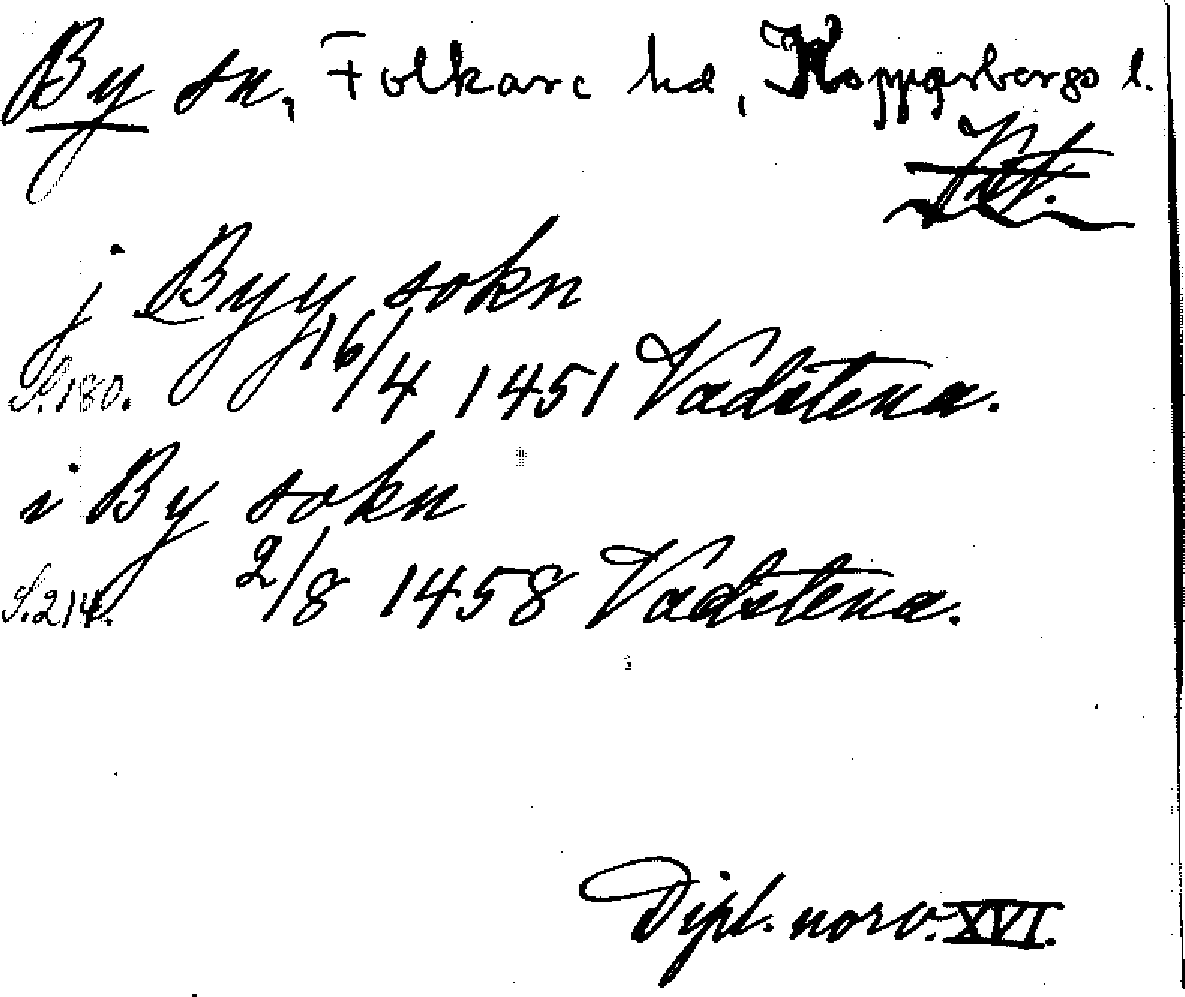 By sn, Folkare hd, Kopparbergs l.
j Byy sokn
S. 180. 16/4 1451 Vadstena.
i By sokn
S. 214. 2/8 1458 Vadstena.
Dipl. norv. XVI.